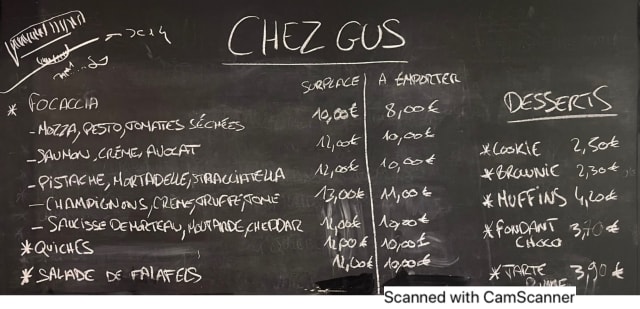 CHEZ GUS
SURPLACE A EMPORTER
* FOCACCIA
- MOZZA, PESTO, TOMATES SÉCHÉES 10,00€ 8,00€
- SAUMON, CRÈME, AVOCAT 12,00€ 10,00€
- PISTACHE, MORTADELLE, STRACCIATELLA 12,00€ 10,00€
- CHAMPIGNONS, CRÈME, TRUFFE, TOME 13,00€ 11,00€
- SAUCISSE DE MORTEAU, MOUTARDE, CHEDDAR 12,00€ 10,00€
* QUICHES 12,00€ 10,00€
* SALADE DE FALAFELS 12,00€ 10,00€
DESSERTS
* COOKIE 2,50€
* BROWNIE 2,30€
* MUFFINS 4,20€
* FONDANT
CHOCO
* TARTE 3,90€
Scanned with CamScanner